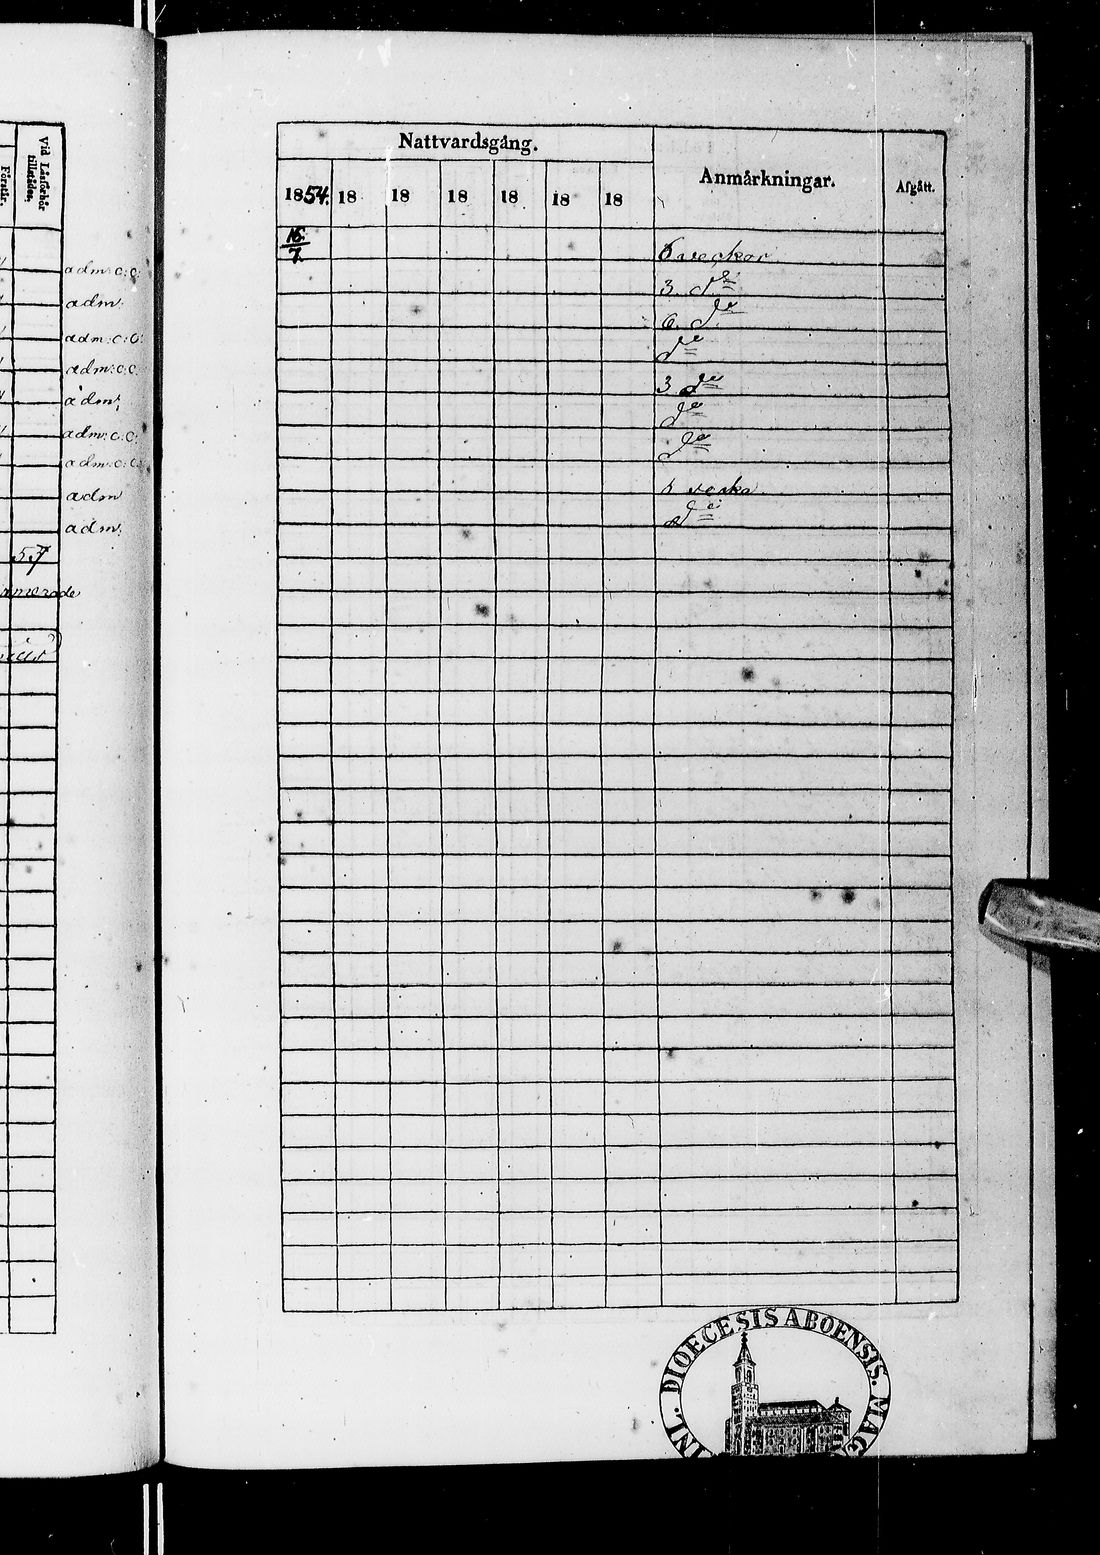 Vid Läsförhör
tillstädes.
Förstår.
adm: c: c:
adm:
adm: c: c:
adm: c: c.
adm:
adm: c: c:
adm: c: c:
adm
adm:
57
Nattvardsgång.
Anmärkningar.
Afgått.
1854. 18 18 18 18 18 18
16/7.
6 veckor
3. do
6. do
do
3 do
do
do
do
DIOECESIS ABOENSIS. MAG